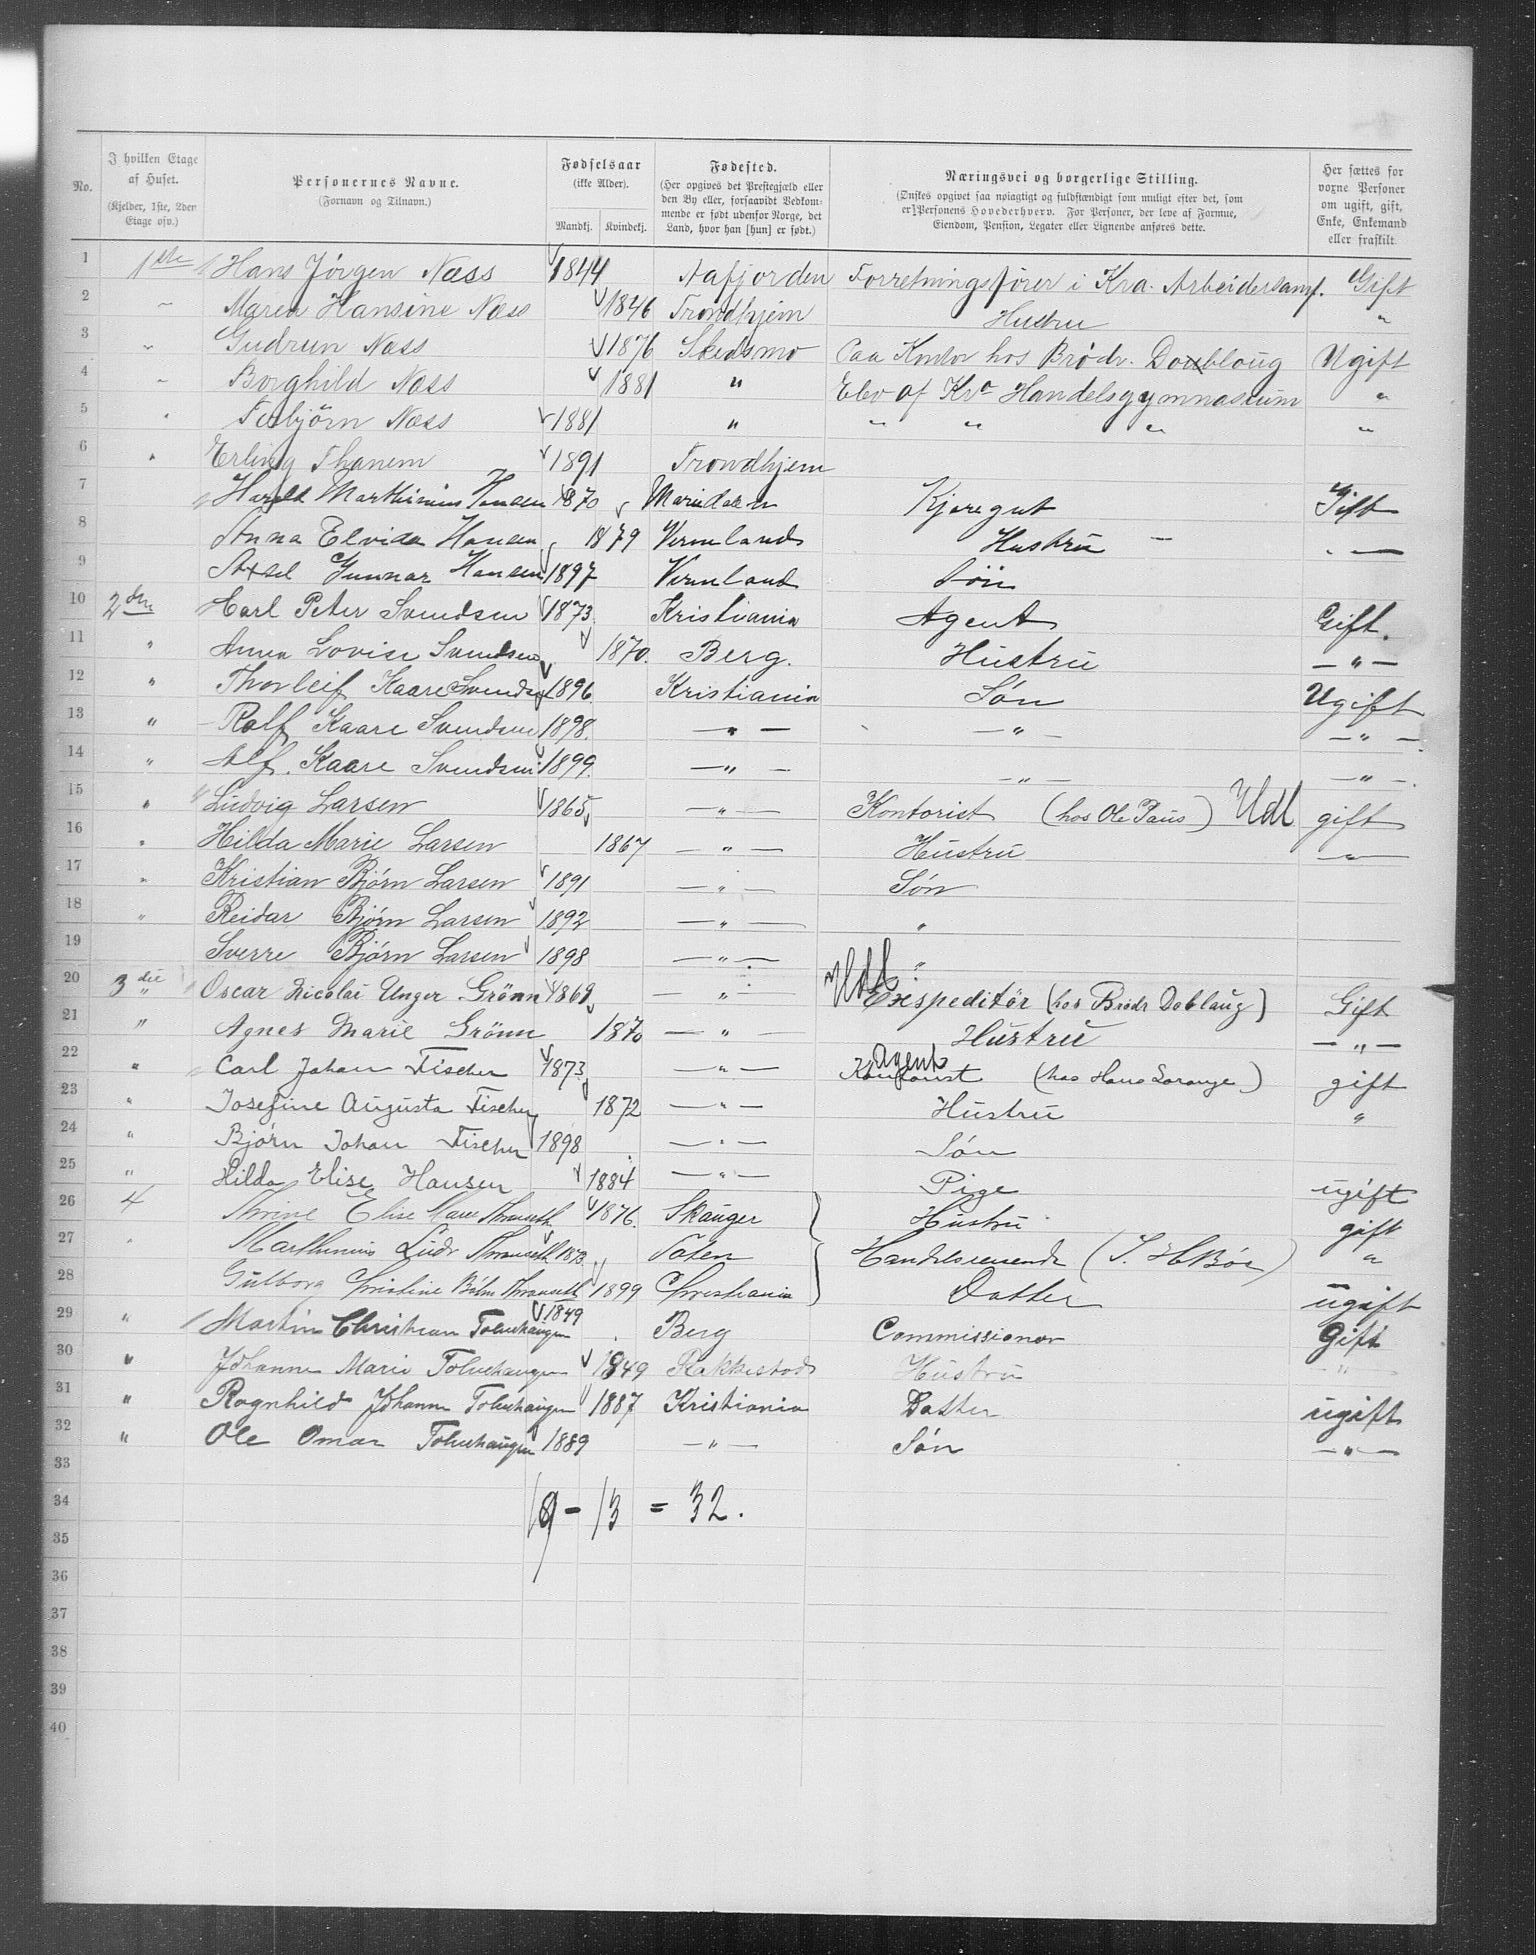 No. | I hvilken Etage af Huset. (Kjelder, 1ste, 2den Etage osv.) | Personernes Navne. (Fornavn og Tilnavn.) | Fødselsaar (ikke Alder). Mandkj. Kvindekj. | Fødested. (Her opgives det Prestegjæld eller den By eller, forsaavidt Vedkommende er født udenfor Norge, det Land, hvor han [hun] er født.) | Næringsvei og borgerlige Stilling. (Ønskes opgivet saa nøiagtigt og fuldstændigt som muligt efter det, som er Personens Hovederhverv. For Personer, der leve af Formue, Eiendom, Pension, Legater eller Lignende anføres dette. | Her sættes for voxne Personer om ugift, gift, Enke, Enkemand eller fraskilt.
1 1ste Hans Jörgen Næss 1844 Aafjorden Forretningsfører i Kra. Arbeidersamf. Gift
2 " Maren Hansine Næss 1846 Trondhjem Hustru "
3 " Gudrun Næss 1876 Skedsmo Paa Kontor hos Brödr. Doubloug Ugift
4 " Borghild Næss 1881 " Elev af Kra Handelsgymnasium "
5 " Næss 1881 " " " " "
6 " Erling Thanem 1891 Trondhjem
7 Harald Marthinius Hansen 1870 Maridalen Kjøregut Gift
8 Anna Elvida Hansen 1879 Vermland Hustru "
9 Axsel Gunnar Hansen 1897 Vermland Sön
10 2den Carl Peter Svendsen 1873 Kristiania Agent Gift.
11 " Anna Lovise Svendsen 1870. Berg. Hustru "
12 " Thorleif Kaare Svendsen 1896 Kristiania Søn Ugift
13 " Rolf Kaare Svendsen 1898. " " "
14 " Alf. Kaare Svendsen 1899. " " "
15 " Ludvig Larsen 1865 " Kontorist (hos Ole Paus) Udl gift
16 " Hilda Marie Larsen 1867 " Hustru "
17 " Kristian Bjørn Larsen 1891 " Søn
18 " Reidar Bjørn Larsen 1892 " "
19 Sverre Bjørn Larsen 1898 " "
20 3die Oscar Nicolai Unger Grönn 1869 " Udl. Exspeditör (hos Brödr Doblaug) Gift
21 " Agnes Marie Grönn 1870 " Hustru "
22 " Carl Johan Fischer 1873 " Agent Kontorist (hos Hans Lorange) gift
23 " Josefine Augusta Fischer 1872 " Hustru "
24 " Bjørn Johan Fischer 1898 " Søn
25 " Hilda Elise Hansen 1884 " Pige ugift
26 4 Elise 1876. Skauger Hustru gift
27 " Marthinius 1873 Toten Handelsreisende ( ) "
28 Gulborg Christine 1899 Christiania Datter ugift
29 " Martin Christian Tolvehaugen 1849 Berg Commissionær Gift
30 " Johanne Marie Tolvehaugen 1849 Rakkestad Hustru "
31 " Ragnhild Johanne Tolvehaugen 1887 Kristiania Datter ugift
32 " Ole Omar Tolvehaugen 1889 " Søn "
33
34 19 - 13 = 32.
35
36
37
38
39
40